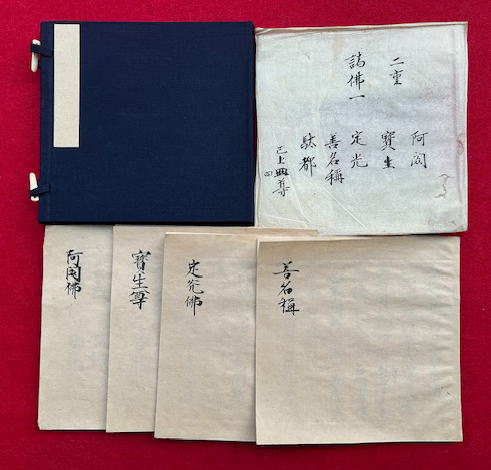 二重
諸佛一
阿閦
寶生
定光
善名稱
馱都
已上
善名稱
定光佛
寶生尊
阿閦佛